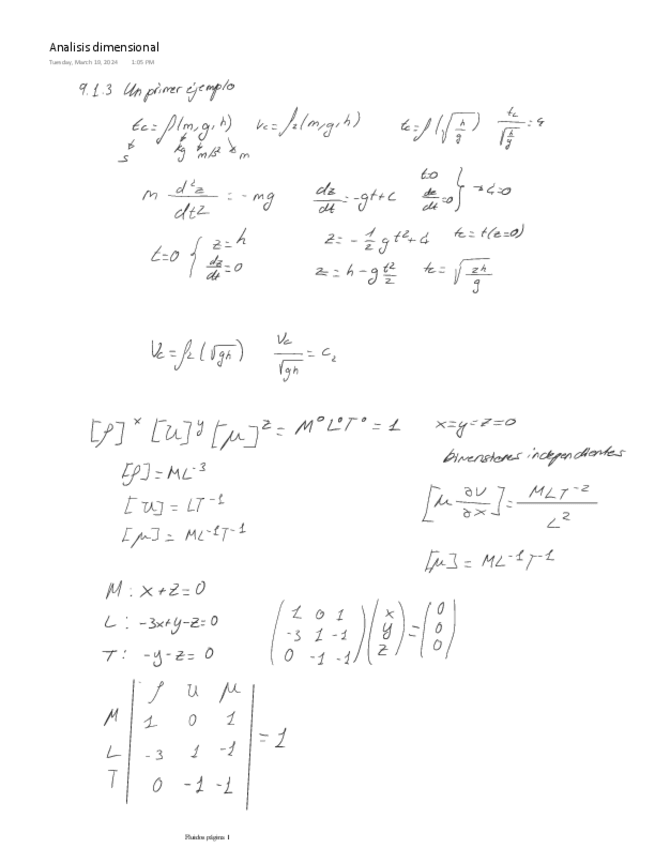 Analisis dimensional
Tuesday, March 19, 2024 1:05 PM
9.1.3 Un primer ejemplo
tc = f(m, g, h) vc = f2(m, g, h) tc = f(√(h/g)) tc/√(h/g) = 
s kg m/s² m
m d²z/dt2 = - mg dz/dt = -gt + c t=0 dz/dt = 0 } → c=0
t=0 { z = h dz/dt = 0 z = - 1/2 g t² + d tc = t(z=0)
z = h - g t²/2 tc = √(2h/g)
Vc = f2(√gh) Vc/√gh = c2
[ρ]^x [U]^y [μ]^z = M°L°T° = 1 x=y=z=0
Dimensiones independientes
[ρ] = ML^-3
[U] = LT^-1 [μ ∂U/∂x] = MLT^-2/L^2
[μ] = ML^-1T^-1
[μ] = ML^-1T^-1
M: x+z=0
L: -3x+y-z=0 (1 0 1; -3 1 -1; 0 -1 -1)(x y z) = (0 0 0)
T: -y-z=0
ρ U μ
M 1 0 1
L -3 1 -1 = 1
T 0 -1 -1
Fluidos página 1